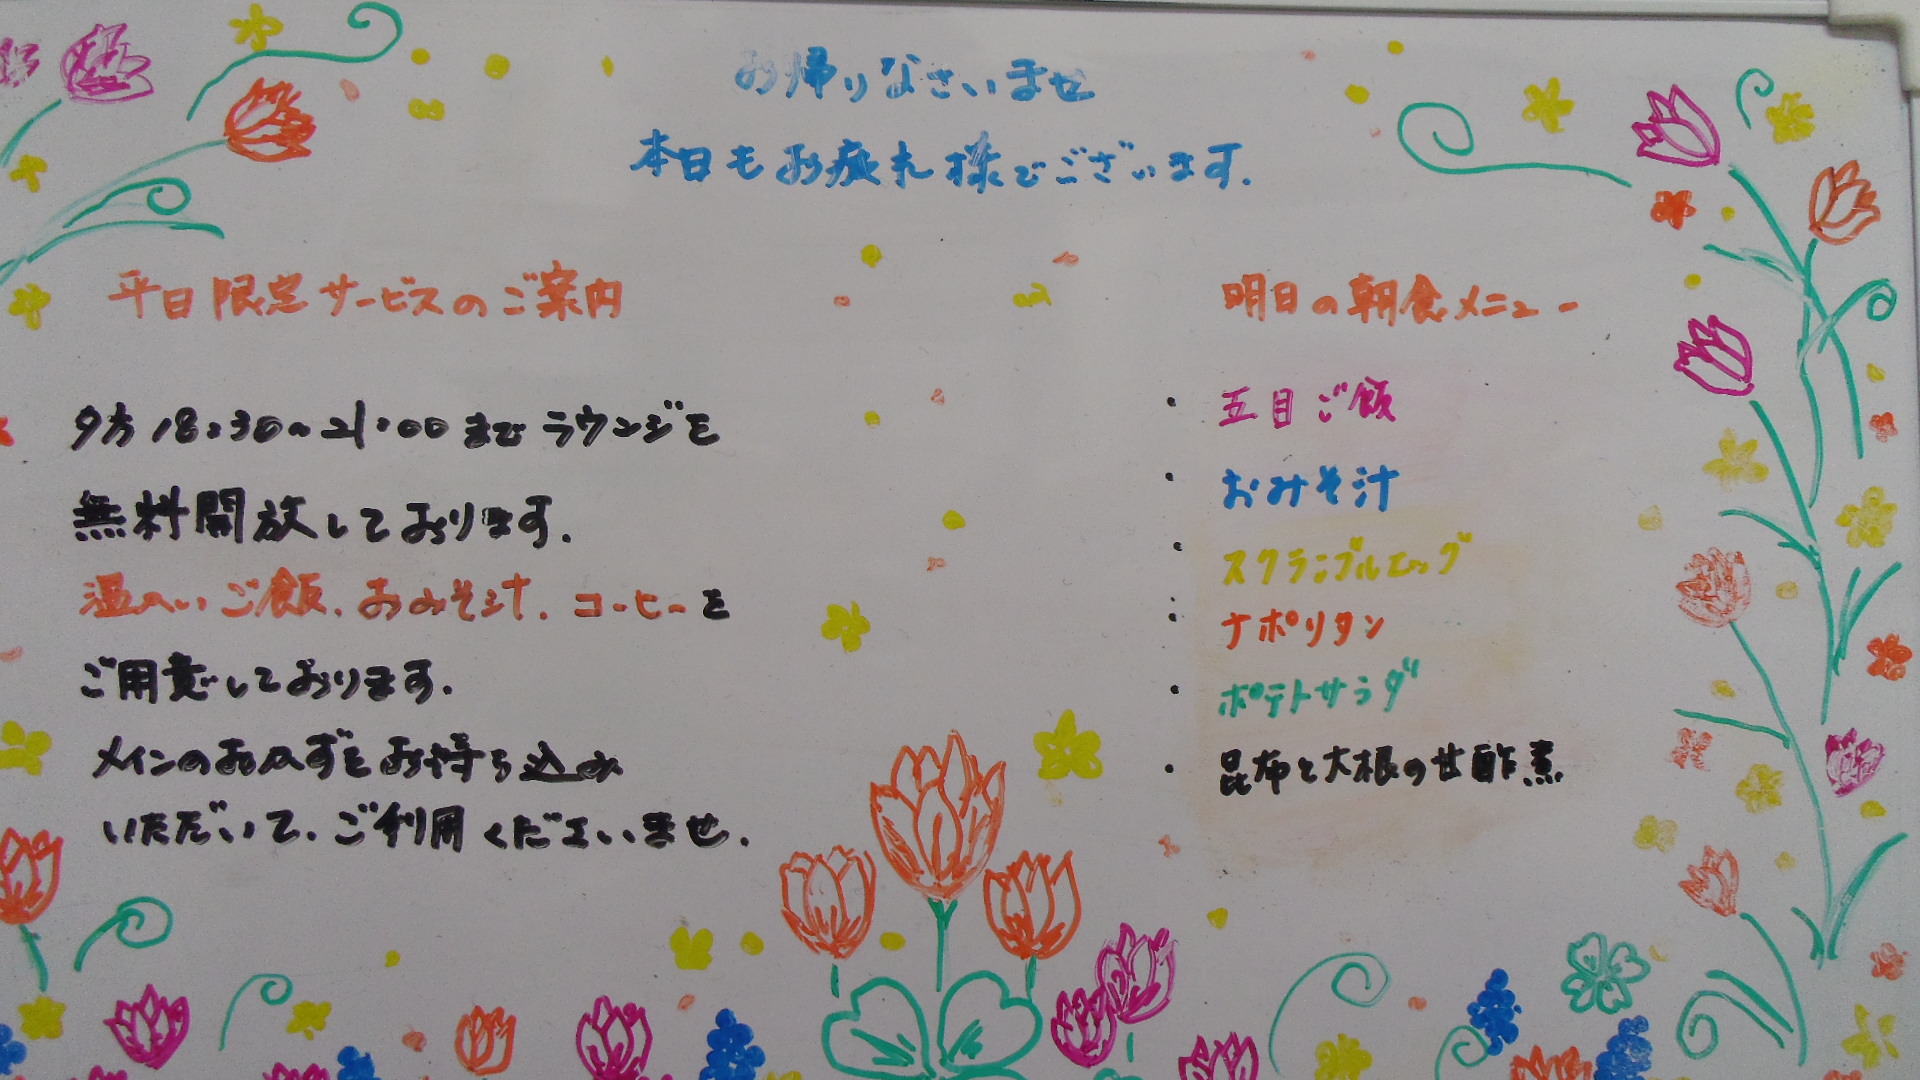 お帰りなさいませ
本日もお疲れ様でございます.
平日限定サービスのご案内
夕方18:30〜21:00までラウンジを
無料開放しております.
温かいご飯.おみそ汁.コーヒーを
ご用意しております.
メインのおかずをお持ち込み
いただいて.ご利用くださいませ.
明日の朝食メニュー
・五目ご飯
・おみそ汁
・スクランブルエッグ
・ナポリタン
・ポテトサラダ
・昆布と大根の甘酢煮